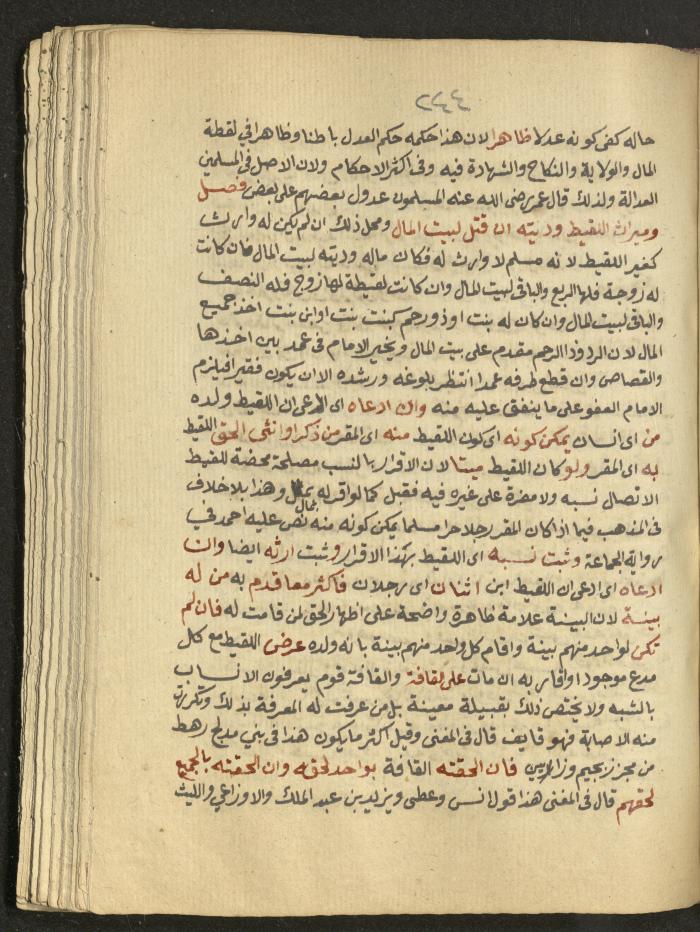 ٢٤٤
حاله كفى كونه عدلا ظاهرا لان هذا حكمه حكم العدل باطنا وظاهرا في لقطة
المال والولاية والنكاح والشهادة فيه وفى اكثر الاحكام ولان الاصل في المسلمين
العدالة ولذلك قال عمر رضي الله عنه المسلمون عدول بعضهم على بعض فصل
وميراث اللقيط وديته ان قتل لبيت المال ومحل ذلك ان لم يكن له وارث
كغير اللقيط لانه مسلم لا وارث له فكان ماله وديته لبيت المال فان كانت
له زوجة فلها الربع والباقي لبيت المال وان كانت لقيطة لها زوج فله النصف
والباقي لبيت المال وان كان له بنت او ذو رحم كبنت بنت او ابن بنت اخذ جميع
المال لان الرد وذا الرحم مقدم على بيت المال ويخير الامام في عمد بين اخذها
والقصاص وان قطع طرفه عمدا انتظر بلوغه ورشده الا ان يكون فقيرا فيلزم
الامام العفو على ما ينفق عليه منه وان ادعاه اى ادعى ان اللقيط ولده
من اى انسان يمكن كونه اى كون اللقيط منه اى المقر من ذكر او انثى الحق اللقيط
به اى المقر ولو كان اللقيط ميتا لان الاقرار بالنسب مصلحة محضة للقيط
لاتصال نسبه ولا مضرة على غيره فيه فقبل كما لو اقر له بمال وهذا بلا خلاف
في المذهب فيما اذا كان المقر رجلا حرا مسلما يمكن كونه منه نص عليه احمد في
رواية الجماعة وثبت نسبه اى اللقيط بهذا الاقرار وثبت ارثه ايضا وان
ادعاه اى ادعى ان اللقيط ابن اثنان اى رجلان فاكثر معا قدم به من له
بينة لان البينة علامة ظاهرة واضحة على اظهار الحق لمن قامت له فان لم
تكن لواحد منهم بينة واقام كل واحد منهم بينة بانه ولده عرض اللقيط مع كل
مدع موجود او اقاربه ان مات على لقافة والقافة قوم يعرفون الانساب
بالشبه ولا يختص ذلك بقبيلة معينة بل من عرفت له المعرفة بذلك وتكررت
منه الاصابة فهو قايف قال في المغني وقيل اكثر ما يكون هذا في بني مدلج رهط
من مجزز بجيم وزايين فان الحقته القافة بواحد لحقه وان الحقته بالجميع
لحقهم قال في المغني هذا قول انس وعطى ويزيد بن عبد الملك والاوزاعي والليث